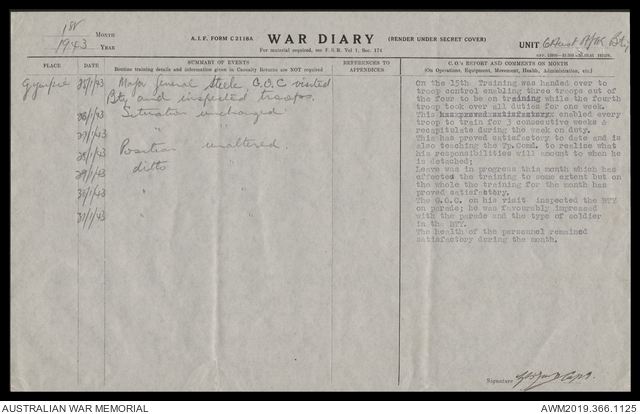 1st MONTH
1943 YEAR
A.I.F. FORM C 2118A
WAR DIARY
(RENDER UNDER SECRET COVER)
For material required, see F.S.R. Vol 1, Sec. 174
UNIT 6 Aust
PLACE
DATE
SUMMARY OF EVENTS
Routine training details and information given in Casualty Returns are NOT required
REFERENCES TO
APPENDICES
C.O's REPORT AND COMMENTS ON MONTH
(On Operations, Equipment, Movement, Health, Administration, etc.)
Gympie 25/1/43 Major General Steele G.O.C visited
Bty and inspected troops.
26/1/43 Situation unchanged
27/1/43 "
28/1/43 Position unaltered.
29/1/43 ditto
30/1/43 "
31/1/43 "
On the 15th. Training was handed over to
troop control enabling three troops out of
the four to be on training while the fourth
troop took over all duties for one week.
This has proved satisfactory enabled every
troop to train for 3 consecutive weeks &
recapitulate during the week on duty.
This has proved satisfactory to date and is
also teaching the Tp.Comd. to realise what
his responsibilities will amount to when he
is detached;
Leave was in progress this month which has
effected the training to some extent but on
the whole the training for the month has
proved satisfactory.
The G.O.C. on his visit inspected the BTY
on parade; he was favourably impressed
with the parade and the type of soldier
in the BTY.
The health of the personnel remained
satisfactory during the month.
Signature
AUSTRALIAN WAR MEMORIAL
AWM2019.366.1125